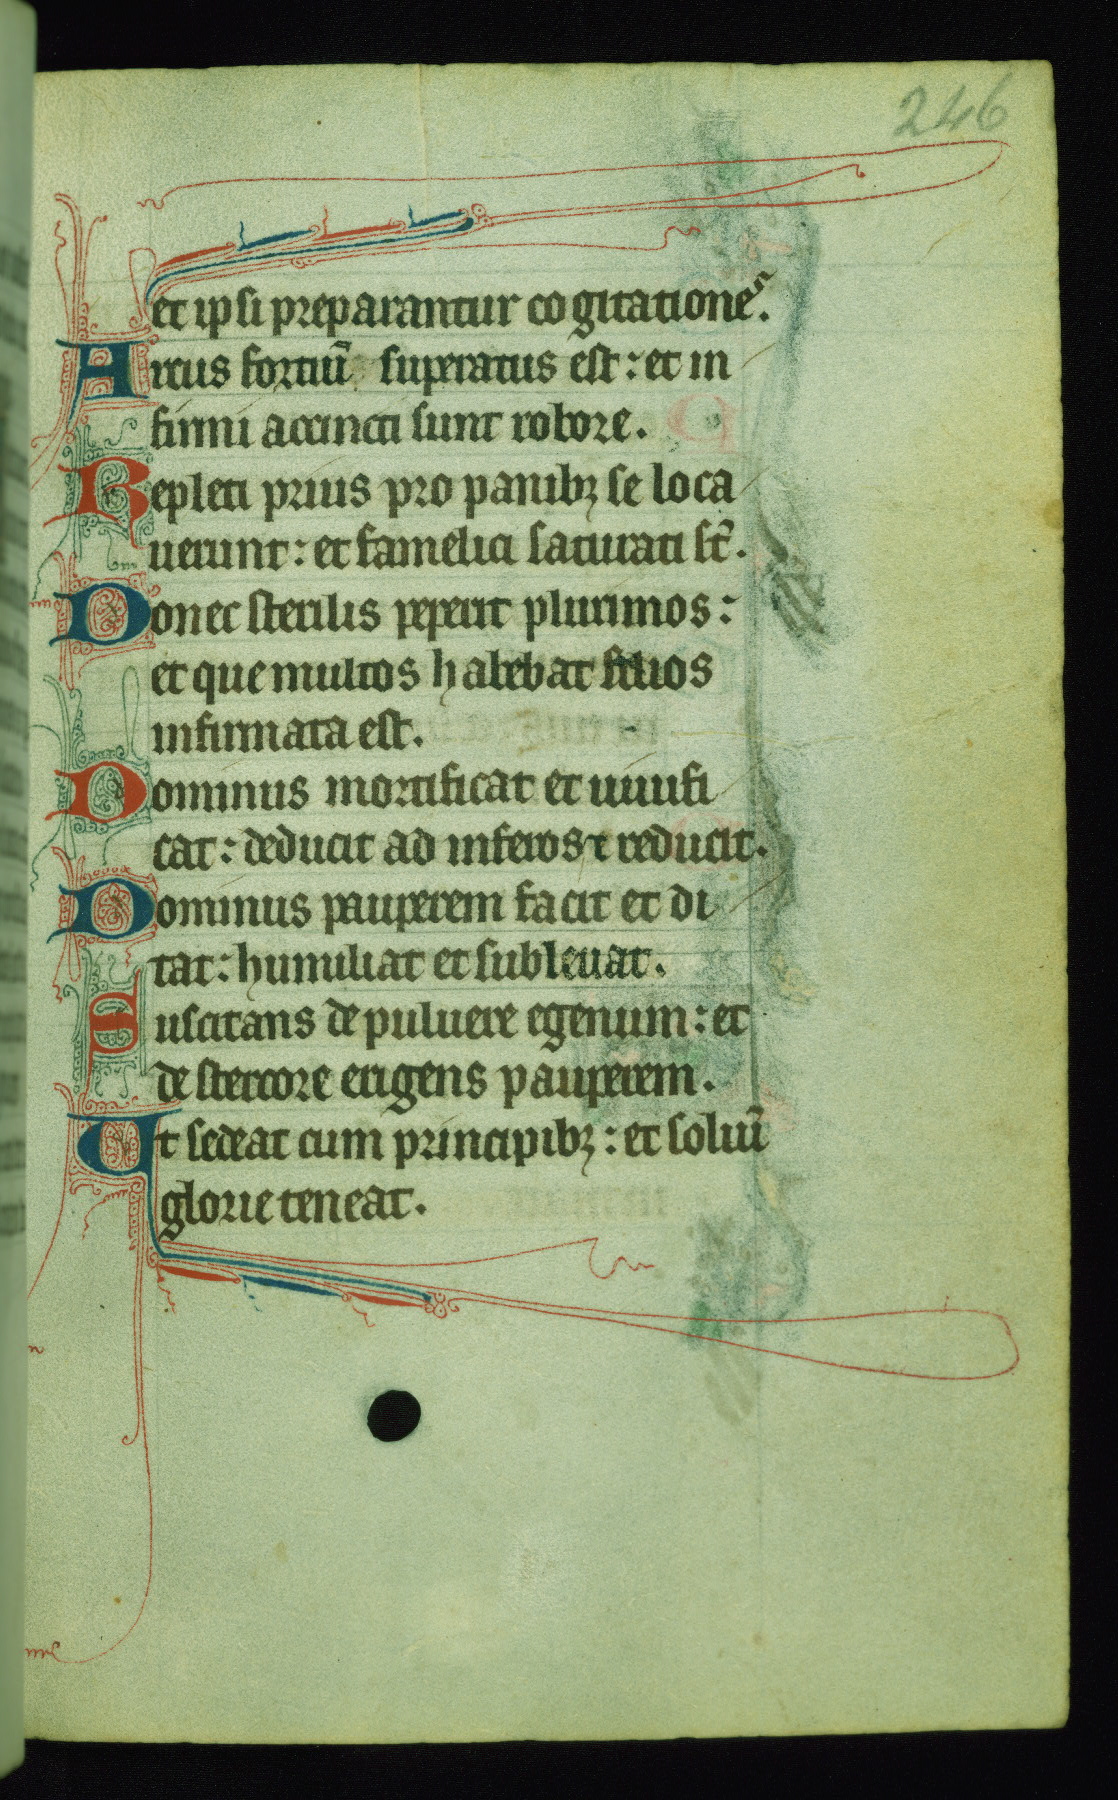 246
et ipsi preparantur cogitationeˢ.
Arcus fortiū superatus est: et in
firmi accincti sunt robore.
Repleti prius pro panibꝫ se loca
uerunt: et famelici saturati st̄.
Donec sterilis peperit plurimos:
et que multos habebat filios
infirmata est.
Dominus mortificat et uiuifi
cat: deducit ad inferos ⁊ reducit.
Dominus pauperem facit et di
tat: humiliat et subleuat.
Suscitans de puluere egenum: et
de stercore erigens pauperem.
Ut sedeat cum principibꝫ: et soliū
glorie teneat.